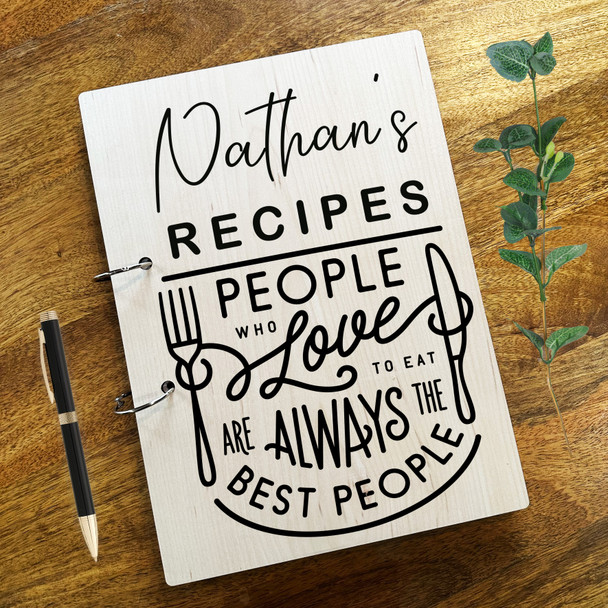 Nathan's
RECIPES
PEOPLE
WHO Love TO EAT
ARE ALWAYS THE
BEST PEOPLE